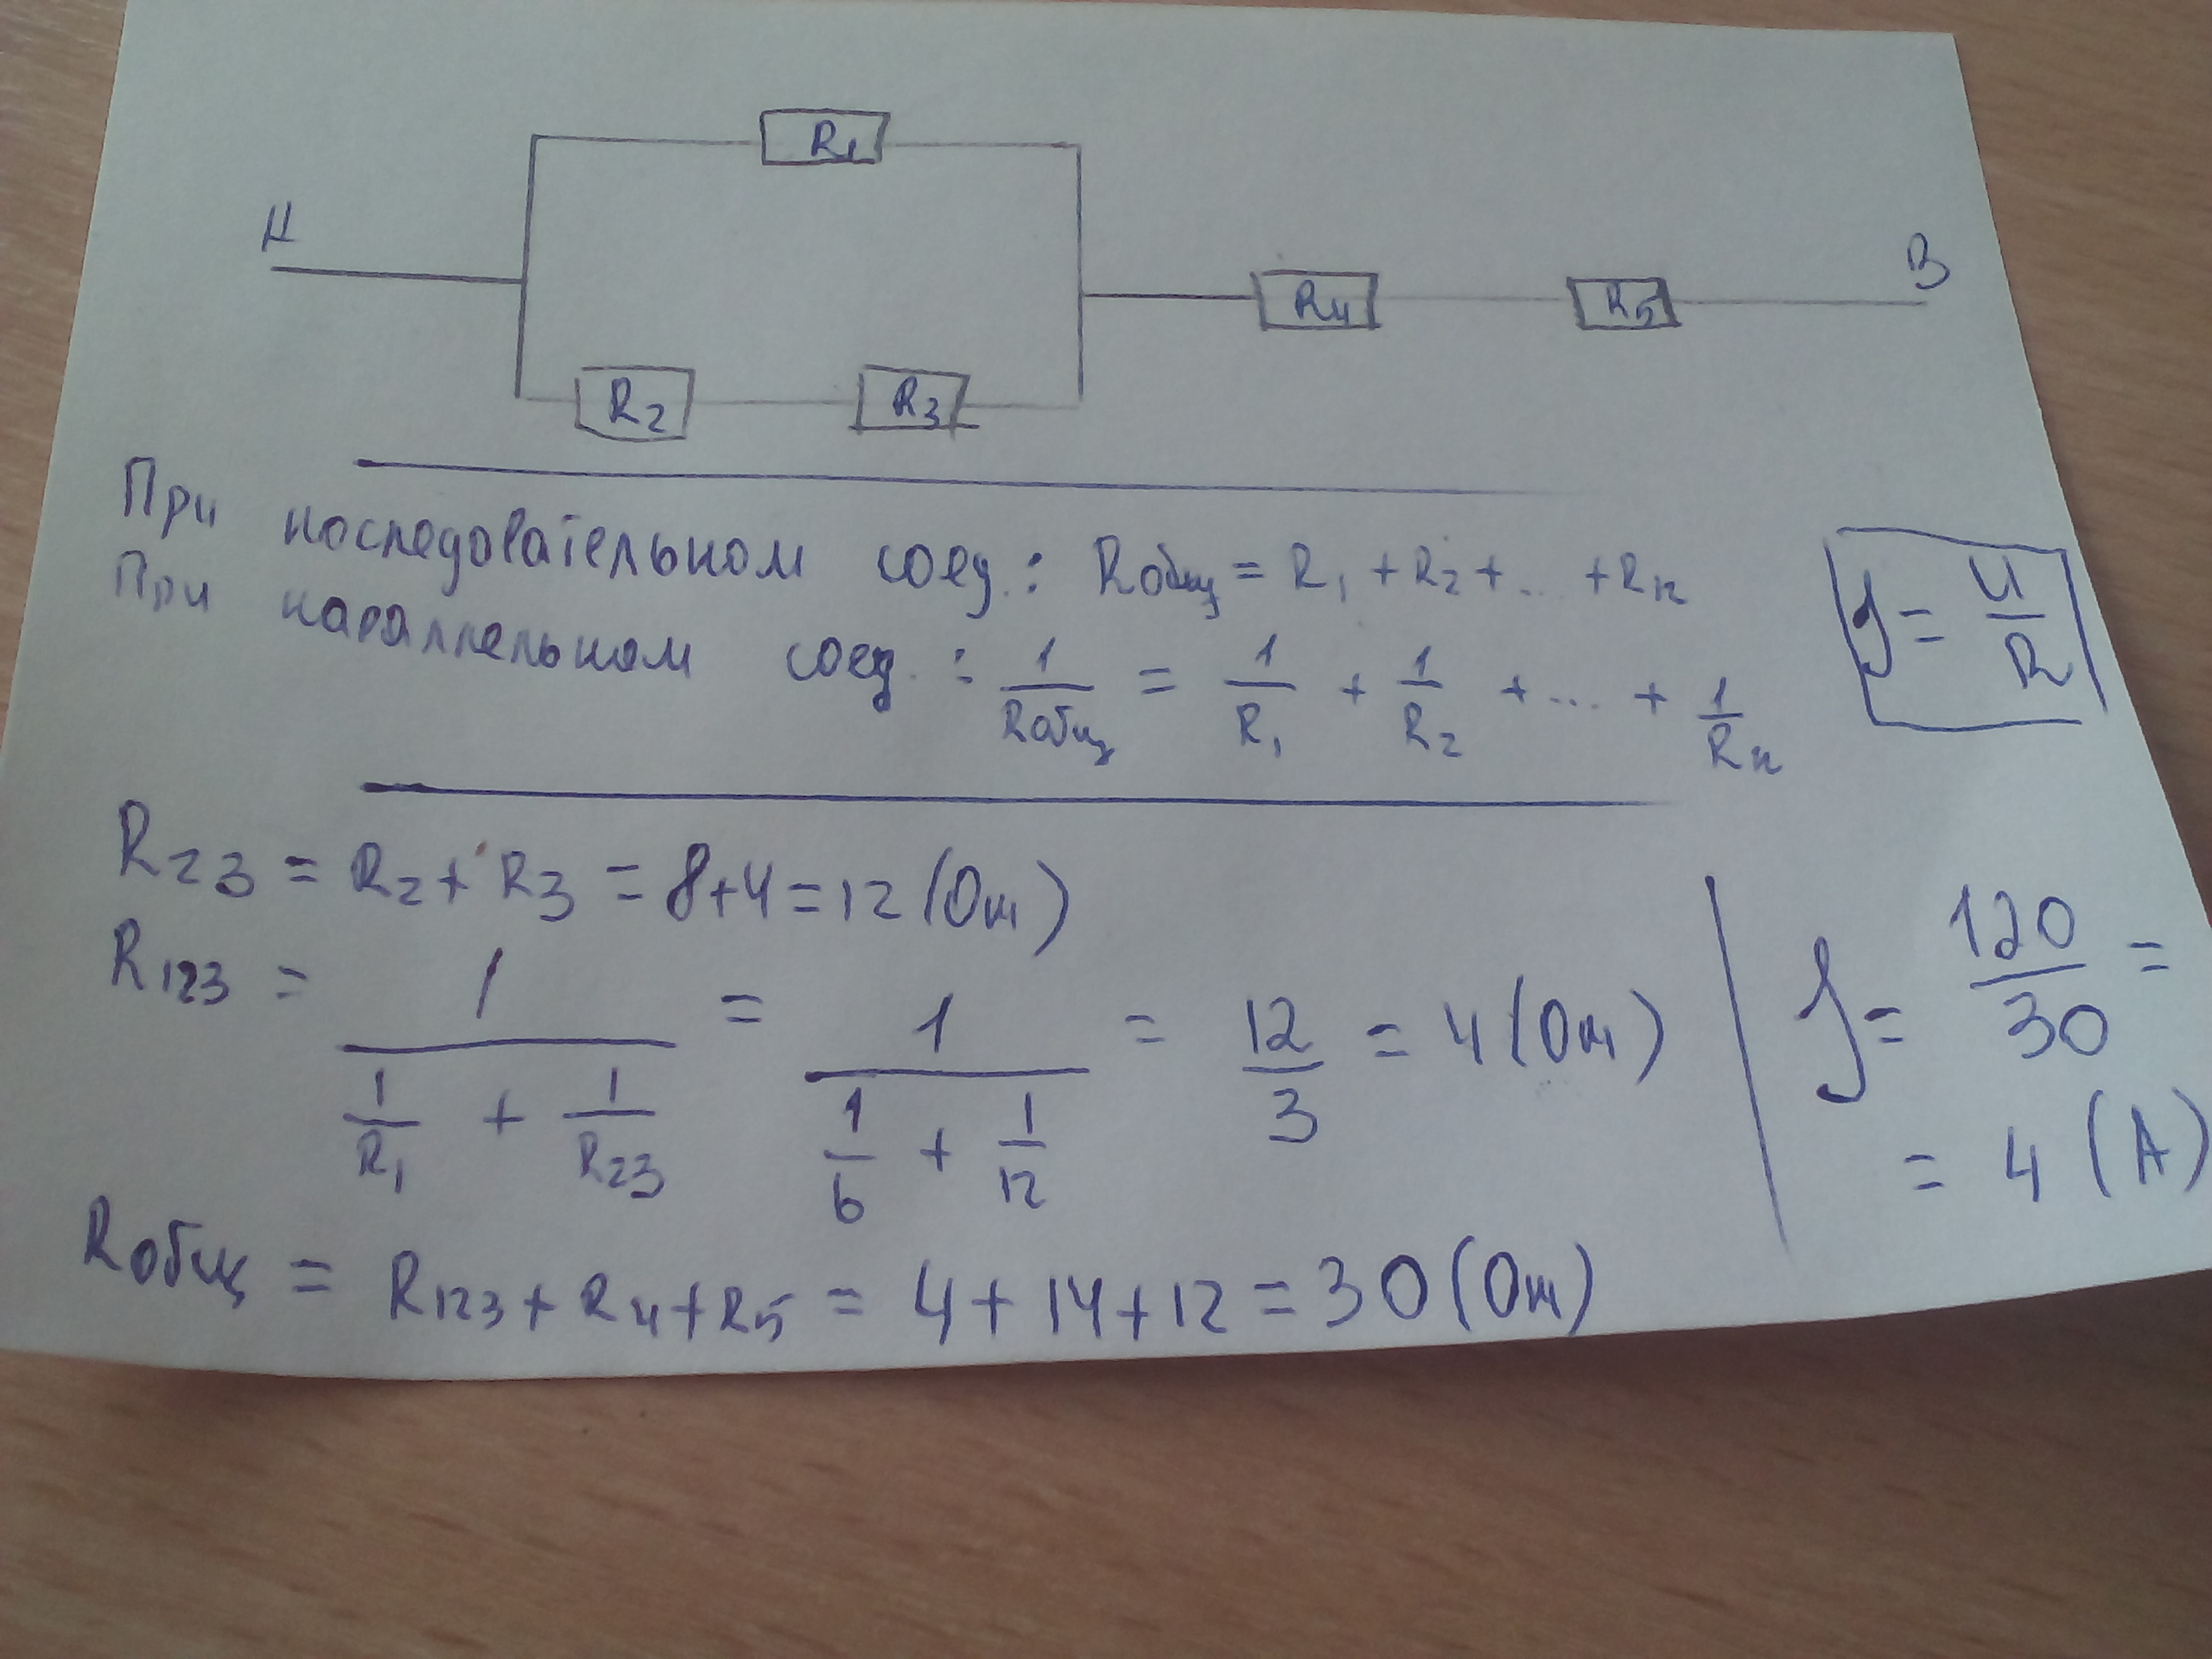 R1
A
R4
R5
B
R2
R3
При последовательном соед.: Rобщ = R1 + R2 + ... + Rn
При параллельном соед.: 1/Rобщ = 1/R1 + 1/R2 + ... + 1/Rn
J = U/R
R23 = R2 + R3 = 8+4 = 12 (Ом)
R123 = 1/(1/R1 + 1/R23) = 1/(1/6 + 1/12) = 12/3 = 4 (Ом)
Rобщ = R123 + R4 + R5 = 4 + 14 + 12 = 30 (Ом)
J = 120/30 =
= 4 (A)